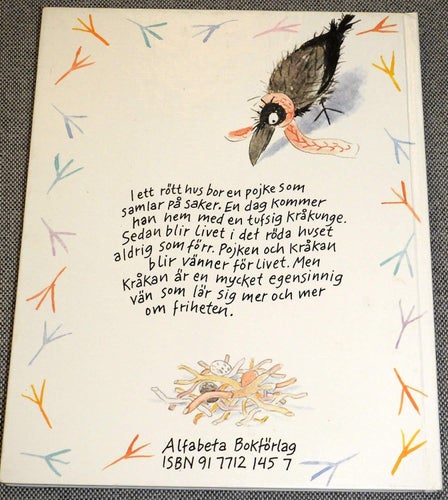 I ett rött hus bor en pojke som
samlar på saker. En dag kommer
han hem med en tufsig kråkunge.
Sedan blir livet i det röda huset
aldrig som förr. Pojken och Kråkan
blir vänner för livet. Men
Kråkan är en mycket egensinnig
vän som lär sig mer och mer
om friheten.
Alfabeta Bokförlag
ISBN 91 7712 145 7